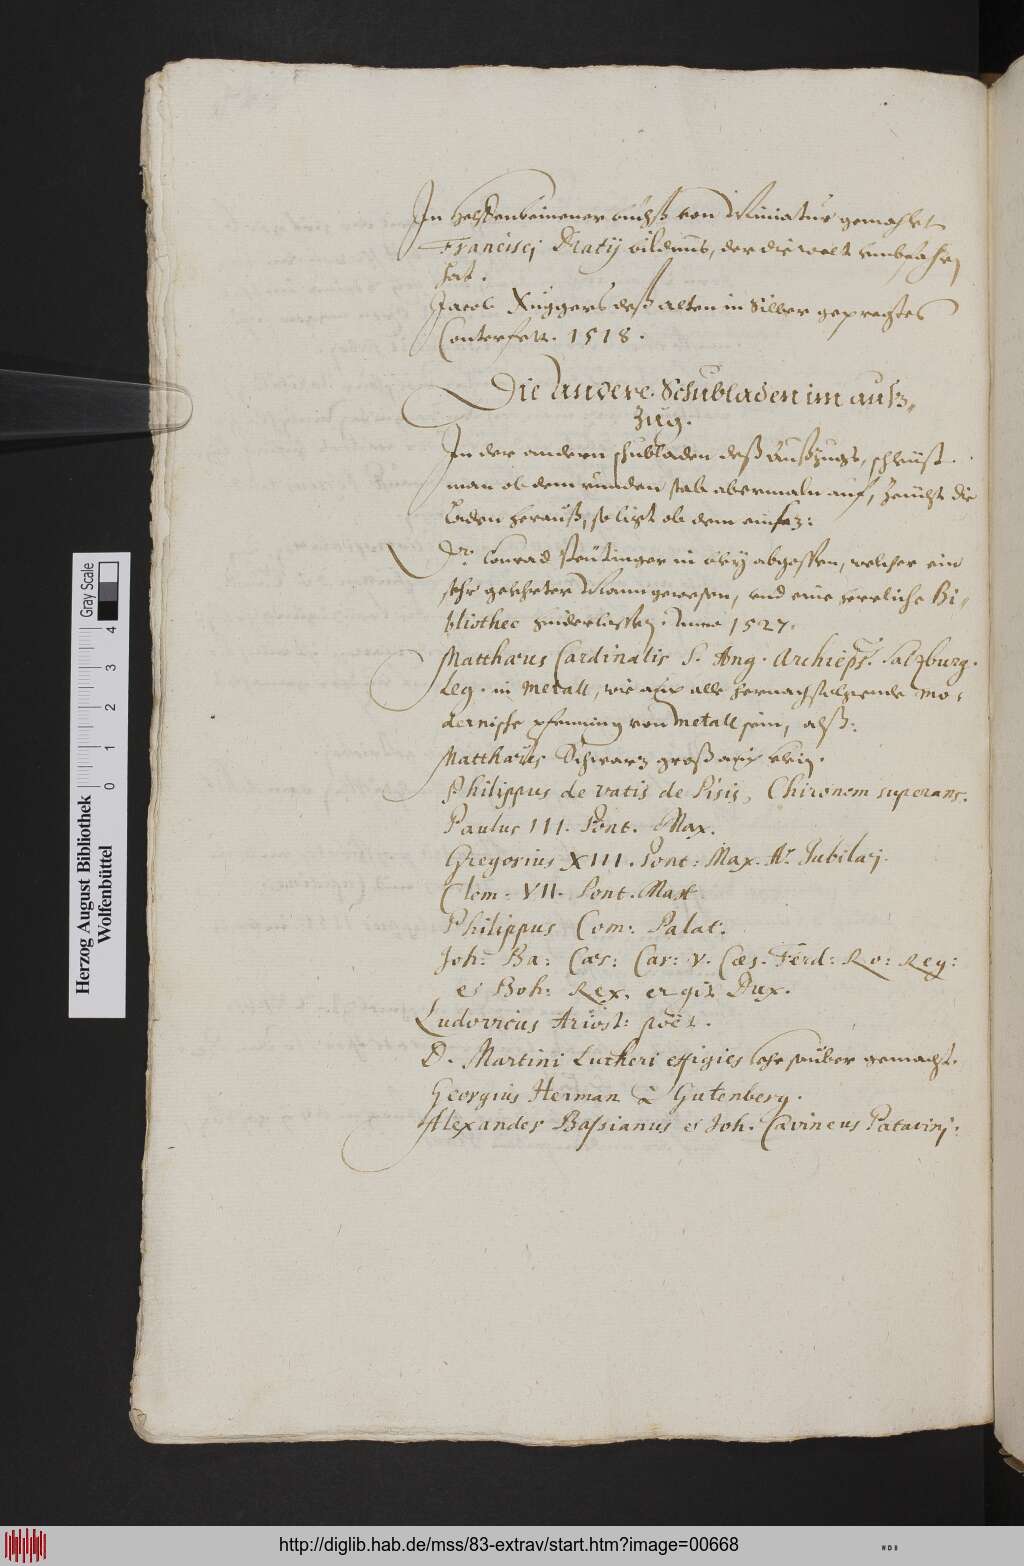 In helffenbeinener büchß von Miniatur gemahlet
Francisci Dracij bildnus, der die welt umbfahren
hat.
Jacob Fuggers deß alten in Silber gepregtes
Conterfett. 1518.
Die andere Schubladen im aufz„
zug.
In der andern schubladen deß außzugs, schleust
man ob dem runden stab abermaln auf, zeücht die
Laden herauß, so ligt ob dem einsaz:
Dr. Conrad Peütinger in bley abgossen, welcher ein
sehr gelehrter Mann gewesen, und eine herrliche Bi„
bliothec hinderlassen. Anno 1527.
Matthæus Cardinalis S. Ang. Archieps. Salzburg.
Leg. in metall, wie auch alle hernachfolgende mo„
dernische pfenning von metall sein, alß:
Matthæus Schwarz groß auch bleig.
Philippus de vatis de Pisis, Chironem superans.
Paulus III. Pont. Max.
Gregorius XIII. Pont: Max. Ao. Jubilæj.
Clem. VII. Pont. Max.
Philippus Com: Palat:
Joh: Ba: Cæs: Car: V. Cæs. Ferd: Ro: Reg:
et Boh: Rex.
Ludovicus Ariost: poët.
D. Martini Lutheri effigies sehr sauber gemacht.
Georgius Herman à Gutenberg.
Alexander Baſsianus et Joh. Cavineus Patavinj.
Herzog August Bibliothek
Wolfenbüttel
Gray Scale
0 1 2 3 4
http://diglib.hab.de/mss/83-extrav/start.htm?image=00668